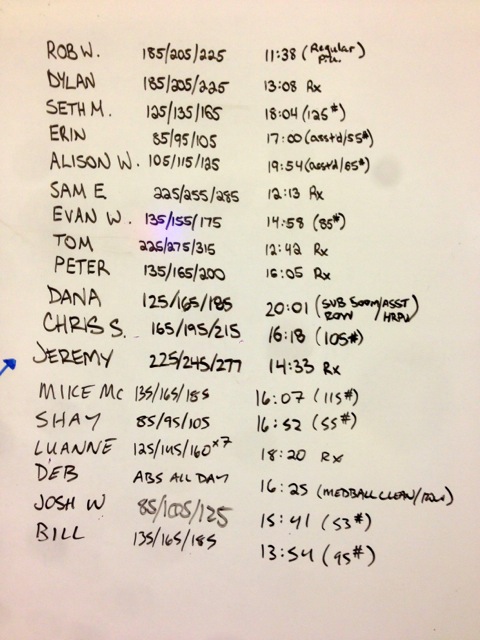 ROB W. 185/205/225 11:38 (Regular P.U.)
DYLAN 185/205/225 13:08 Rx
SETH M. 125/135/165 18:04 (125#)
ERIN 85/95/105 17:00 (asst'd/55#)
ALISON W. 105/115/125 19:54 (asst'd/65#)
SAM E 225/255/285 12:13 Rx
EVAN W. 135/155/175 14:58 (85#)
TOM 225/275/315 12:42 Rx
PETER 135/165/200 16:05 Rx
DANA 125/165/185 20:01 (SUB 500M/ASST ROW HRPU)
CHRIS S. 165/195/215 16:18 (105#)
JEREMY 225/245/277 14:33 Rx
MIKE MC 135/165/185 16:07 (115#)
SHAY 85/95/105 16:52 (55#)
LUANNE 125/145/160 x7 18:20 Rx
DEB ABS ALL DAY 16:25 (MEDBALL CLEAN/ROW)
JOSH W 85/105/125 15:41 (53#)
BILL 135/165/185 13:54 (95#)